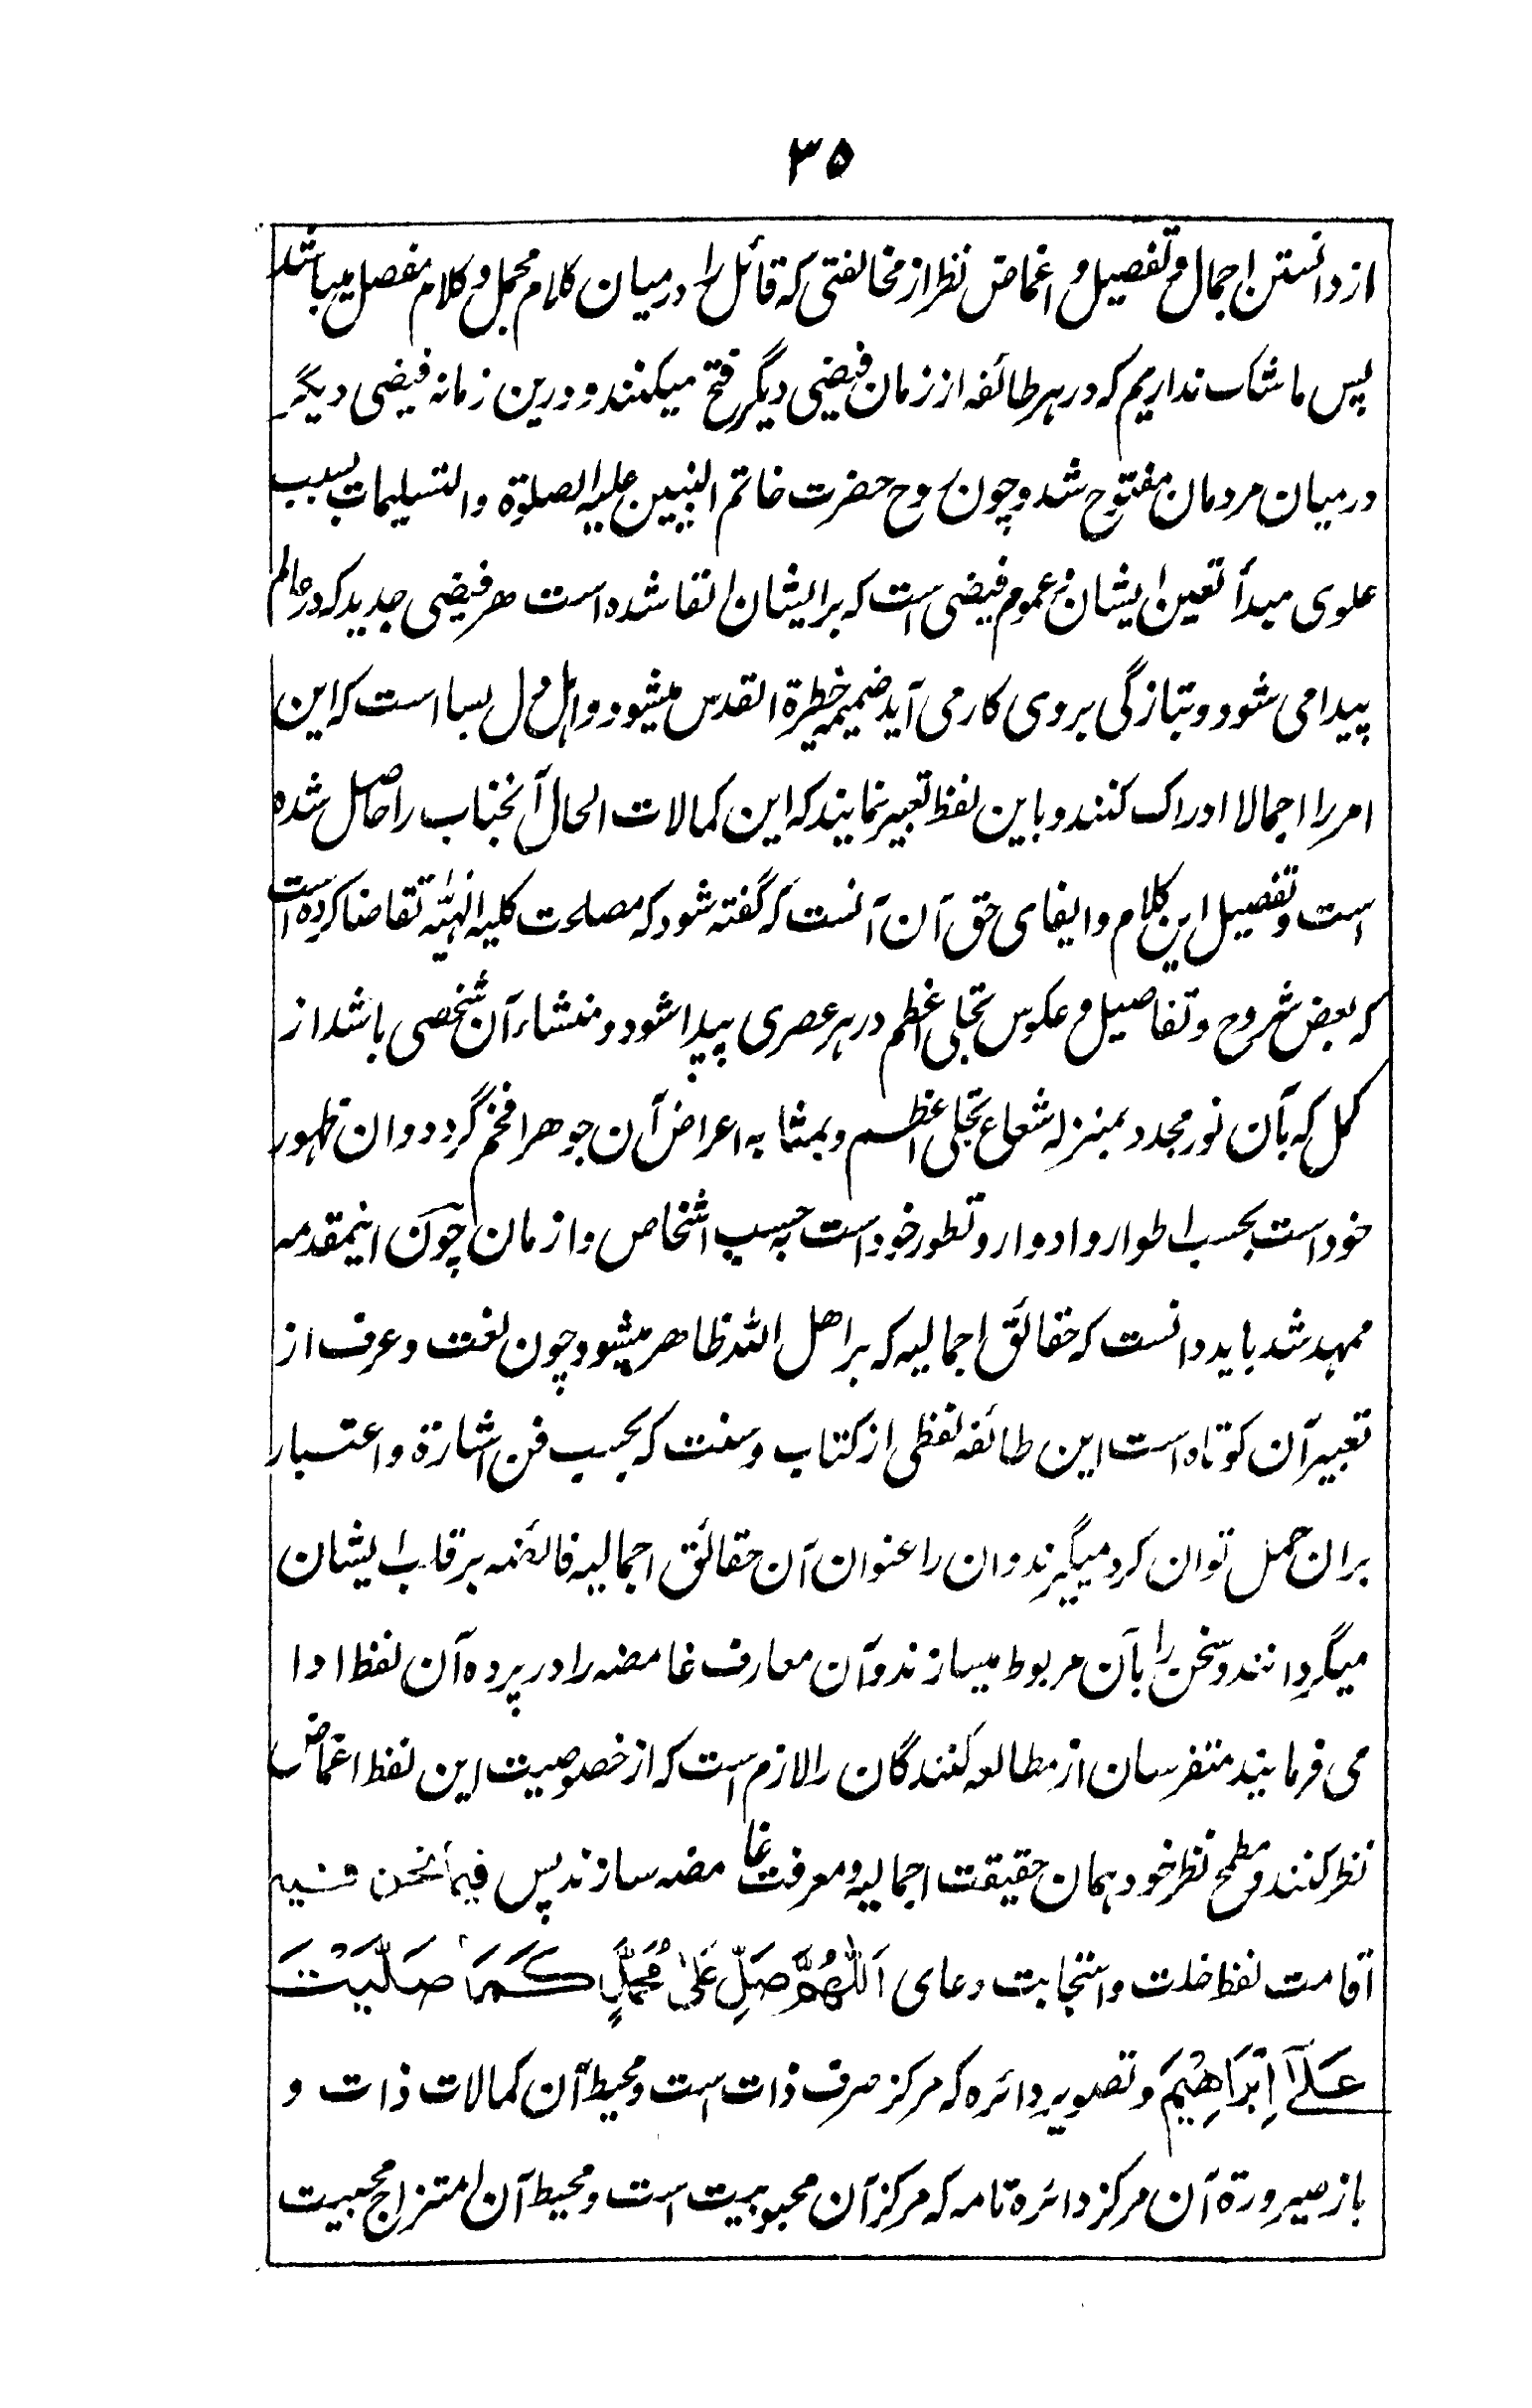 ۳۵
از دانستن اجمال و تفصیل و اغماض نظر از مخالفتی که قائل را درمیان کلام مجمل و کلام مفصل میباشد
پس ما شک نداریم که در هر طائفه از زمان فیضی دیگر فتح میکنند و درین زمانه فیضی دیگر
درمیان مردمان مفتوح شد و چون روح حضرت خاتم النبیین علیه الصلوة والتسلیمات بسبب
علوی مبدأ تعین ایشان و عموم فیضی است که بر ایشان القا شده است هر فیضی جدید که در عالم
پیدا می شود و بتازگی بروی کار می آید ضمیمه خطیرة القدس میشود و اول بسا است که این
امر را اجمالا ادراک کنند و باین لفظ تعبیر نمایند که این کمالات الحال آنجناب را حاصل شده
است و تفصیل این کلام و ایفای حق آن آنست که گفته شود که مصلحت کلیه الٰهیّه تقاضا کرده است
که بعض شروح و تفاصیل و عکوس تجلی اعظم در هر عصری پیدا شود و منشاء آن شخصی باشد از
کمل که بآن نور مجدد بمنزله شعاع تجلی اعظم و بمثابه اعراض آن جوهر افخم گردد و ان ظهور
خود است بحسب اطوار و ادوار و تطور خود است بحسب اشخاص و ازمان چون اینمقدمه
ممهد شد باید دانست که حقائق اجمالیه که بر اهل الله ظاهر میشود چون لغت و عرف از
تعبیر آن کوتاه است این طائفه لفظی از کتاب و سنت که بحسب فن اشارة و اعتبار
بران حمل توان کرد میگیرند و ان را عنوان آن حقائق اجمالیه فائضه بر قلب ایشان
میگردانند و سخن را بآن مربوط میسازند و آن معارف غامضه را در پرده آن لفظ ادا
می فرمایند متفرسان از مطالعه کنندگان را لازم است که از خصوصیت این لفظ اغماض
نظر کنند و مطمح نظر خود همان حقیقت اجمالیه و معرفت غامضه سازند پس فیما نحن فیه
اقامت لفظ خلت و استجابت دعای اَللّٰهُمَّ صَلِّ عَلٰی مُحَمَّدٍ کَمَا صَلَّیْتَ
عَلٰی اِبْرَاهِیْمَ و تصویر دائره که مرکز صرف ذات است و محیط آن کمالات ذات و
باز صیرورة آن مرکز دائره تامه که مرکز آن محبوبیت است و محیط آن امتزاج محبیت